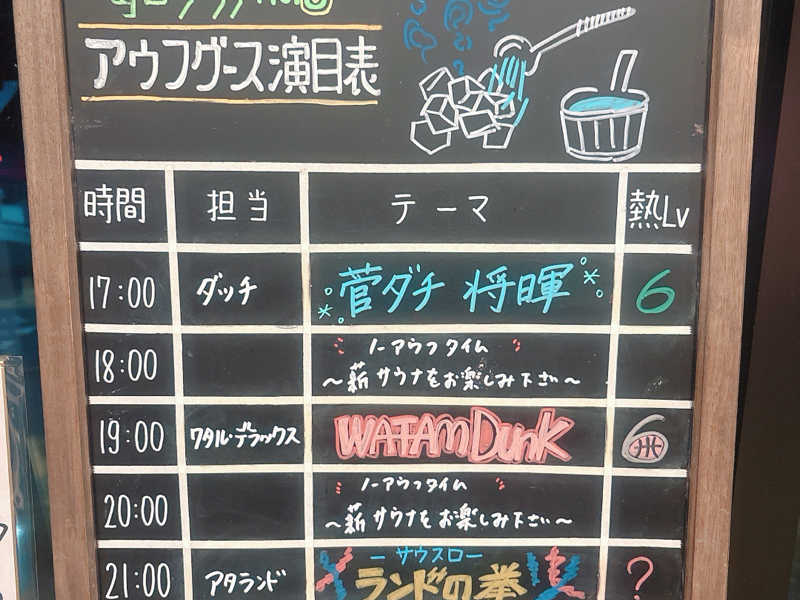 アウフグース演目表
時間 担当 テーマ 熱Lv
17:00 ダッチ 菅ダチ 将暉 6
ノーアウフタイム
18:00 ～薪サウナをお楽しみ下さい～
19:00 ワタル・デラックス WATAM Dunk 6
ノーアウフタイム
20:00 ～薪サウナをお楽しみ下さい～
ーサウスローー
21:00 アタランド ランドの拳 ?